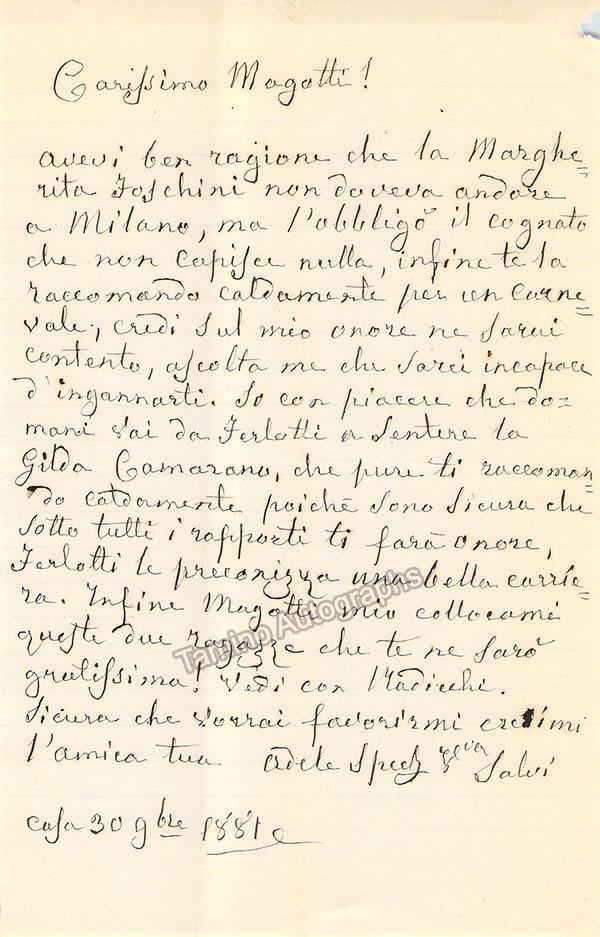 Carissimo Magotti!
avevi ben ragione che la Marghe=
rita Foschini non doveva andare
a Milano, ma l'obbligò il cognato
che non capisce nulla, infine te la
raccomando caldamente per un carne=
vale, credi sul mio onore ne sarai
contento, ascolta me che sarei incapace
d'ingannarti. So con piacere che do=
mani vai da Ferlotti a sentire la
Gilda Camarano, che pure ti raccoman
do caldamente poichè sono sicura che
sotto tutti i rapporti ti farà onore,
Ferlotti le preconizza una bella carrie=
ra. Infine Magotti mio collocami
queste due ragazze che te ne sarò
gratissima! Vedi con Radicchi.
Sicura che vorrai favorirmi credimi
l'amica tua Adele Spech Salvi
casa 30 9bre 1881
Tamino Autographs